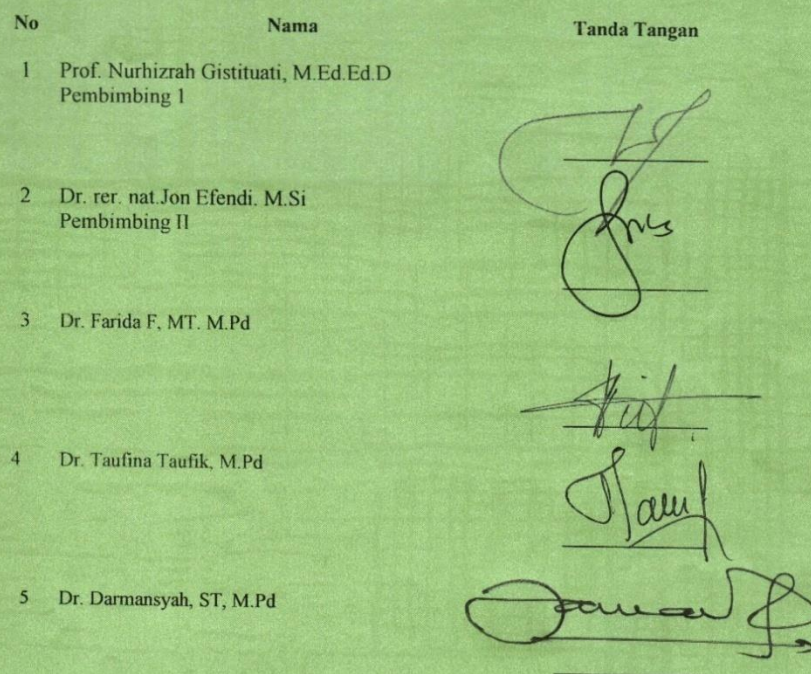 No Nama Tanda Tangan
1 Prof. Nurhizrah Gistituati, M.Ed.Ed.D
Pembimbing 1
2 Dr. rer. nat.Jon Efendi. M.Si
Pembimbing II
3 Dr. Farida F, MT. M.Pd
4 Dr. Taufina Taufik, M.Pd
5 Dr. Darmansyah, ST, M.Pd